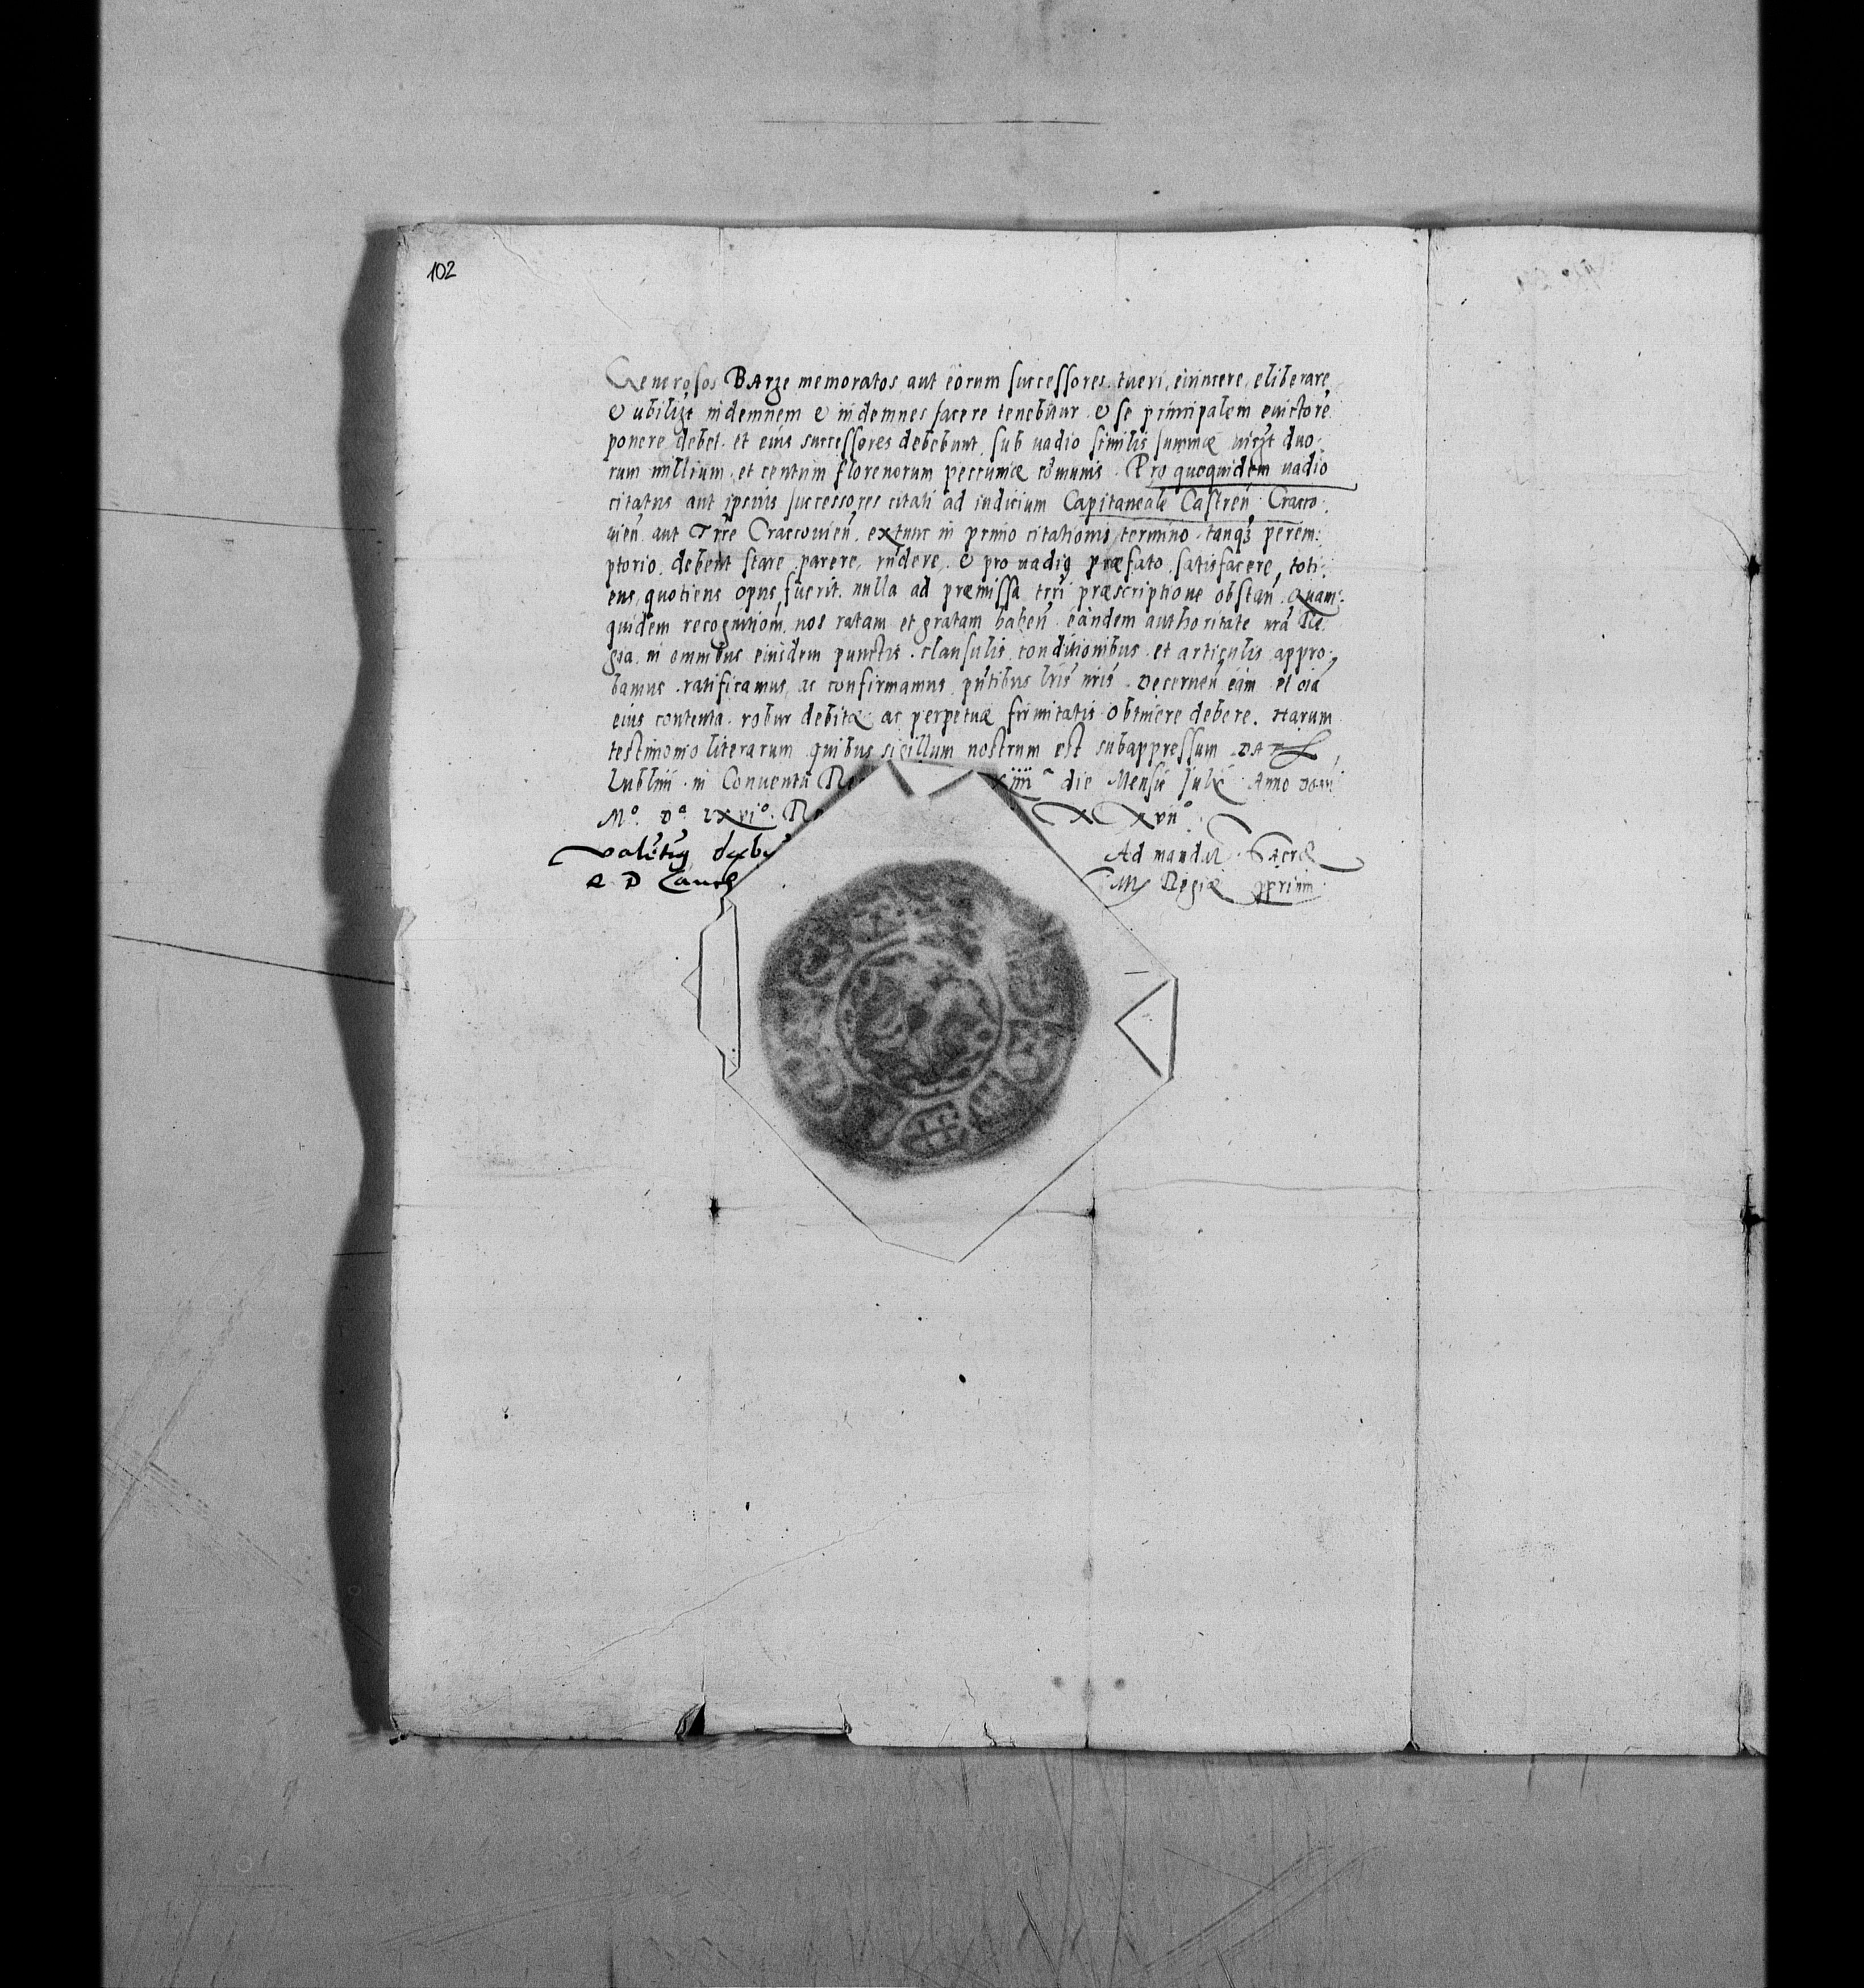 102
Generosos Barze memoratos aut eorum successores tueri, euincere, eliberare,
& ubilizt indemnem & indemnes facere tenebitur & se principalem euictorē
ponere debet et eius successores debebunt sub uadio similis summæ uidzt duo:
rum millium et centum florenorum peccuniæ cōmunis. Pro quoquidem uadio
citatus aut ipsius successores citati ad iudicium Capitaneale Castreñ Craco:
uieñ aut Trre Cracouieñ, extunc in primo citationis termino tanqz perem:
ptorio debent stare parere, rñdere, & pro uadio præfato satisfacere, toti:
ens, quotiens opus fuerit, nulla ad præmissa trri præscriptione obstañ. Quam:
quidem recognitioñ nos ratam et gratam habeñ eandem authoritate nrā Re:
gia in omnibus eiusdem punctis clausulis conditionibus et articulis appro:
bamus ratificamus ac confirmamus pñtibus lris nris. Decerneñ eām et oiā
eius contenta robur debitæ ac perpetuæ firmitatis obtinere debere. Harum
testimonio literarum quibus sigillum nostrum est subappressum Dat
Lublini in Conuentu die Mensis Julii Anno Domi
M° D° LXVI°
Ad mandat Sacræ
Mtis Regiæ pprium